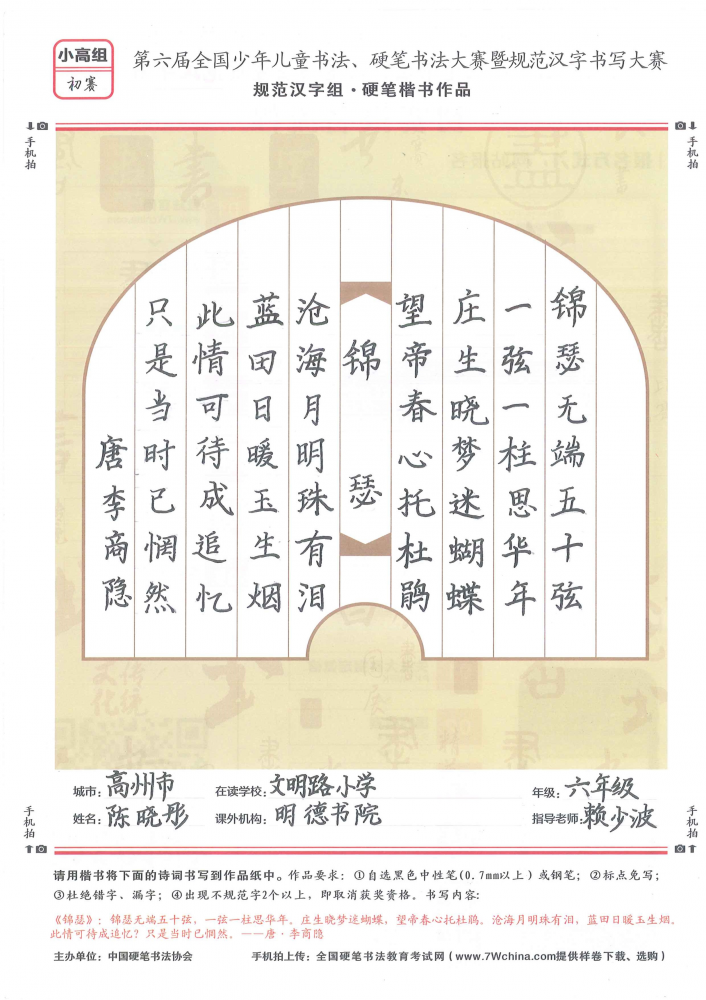 小高组
初赛
第六届全国少年儿童书法、硬笔书法大赛暨规范汉字书写大赛
规范汉字组·硬笔楷书作品
手机拍
手机拍
锦瑟无端五十弦
一弦一柱思华年
庄生晓梦迷蝴蝶
望帝春心托杜鹃
锦瑟
沧海月明珠有泪
蓝田日暖玉生烟
此情可待成追忆
只是当时已惘然
唐李商隐
城市：高州市 在读学校：文明路小学 年级：六年级
姓名：陈晓彤 课外机构：明德书院 指导老师：赖少波
手机拍
手机拍
请用楷书将下面的诗词书写到作品纸中。作品要求：①自选黑色中性笔(0.7mm以上）或钢笔；②标点免写；
③杜绝错字、漏字；④出现不规范字2个以上，即取消获奖资格。书写内容：
《锦瑟》：锦瑟无端五十弦，一弦一柱思华年。庄生晓梦迷蝴蝶，望帝春心托杜鹃。沧海月明珠有泪，蓝田日暖玉生烟。
此情可待成追忆？只是当时已惘然。——唐·李商隐
主办单位：中国硬笔书法协会 手机拍上传：全国硬笔书法教育考试网（www.7Wchina.com提供样卷下载、选购）